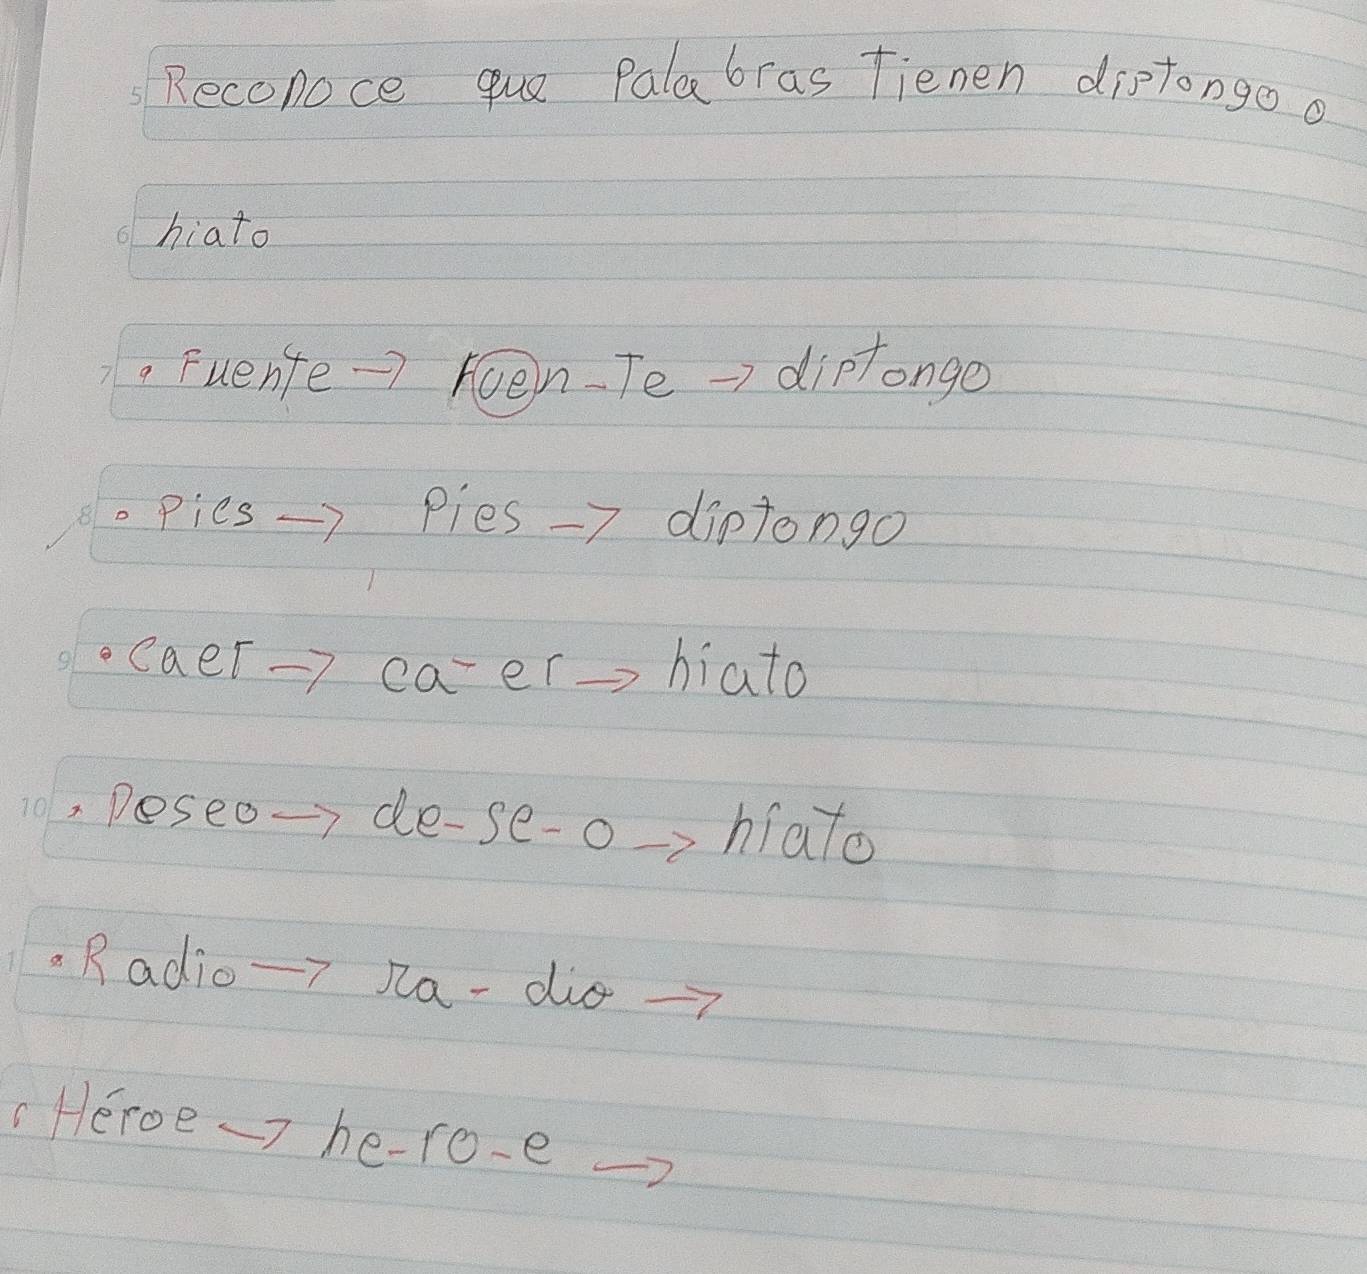 5 Reconoce que Palabras Tienen diptongo o
6 hiato
7 • Fuente → Fuen-Te → diptongo
8 • Pies → Pies → diptongo
9 • Caer → ca-er → hiato
10 • Deseo → de-se-o → hiato
• Radio → ra-dio →
• Héroe → he-ro-e →